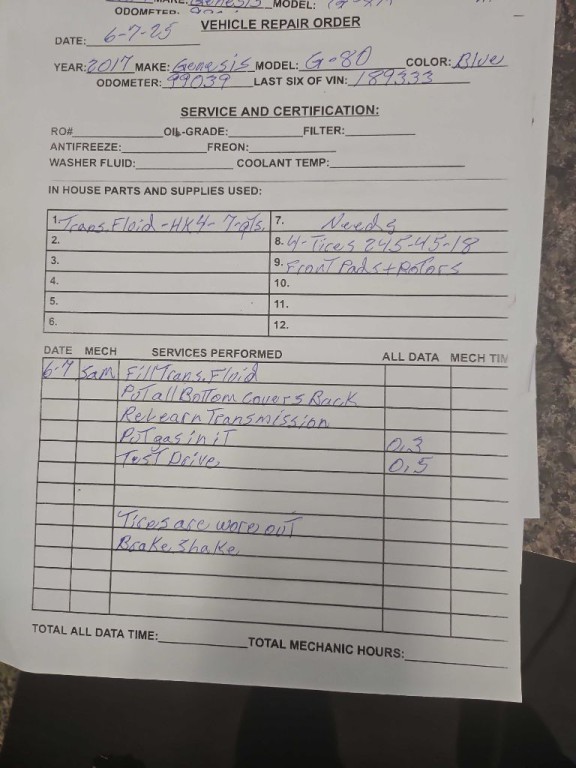 MAKE: Genesis MODEL:
ODOMETER:
VEHICLE REPAIR ORDER
DATE: 6-7-25
YEAR: 2017 MAKE: Genesis MODEL: G-80 COLOR: Blue
ODOMETER: 99039 LAST SIX OF VIN: 189333
SERVICE AND CERTIFICATION:
RO# OIL-GRADE: FILTER:
ANTIFREEZE: FREON:
WASHER FLUID: COOLANT TEMP:
IN HOUSE PARTS AND SUPPLIES USED:
1. Trans. Fluid - HK4 - 7-qts. 7. Needs
2. 8. 4-Tires 245-45-18
3. 9. Front Pads + Rotors
4. 10.
5. 11.
6. 12.
DATE MECH SERVICES PERFORMED ALL DATA MECH TIM
6-7 Sam Fill Trans. Fluid
Put all Bottom Covers Back
Relearn Transmission
Put gas in iT 0.3
Test Drive 0.5
Tires are wore out
Brake Shake
TOTAL ALL DATA TIME: TOTAL MECHANIC HOURS: